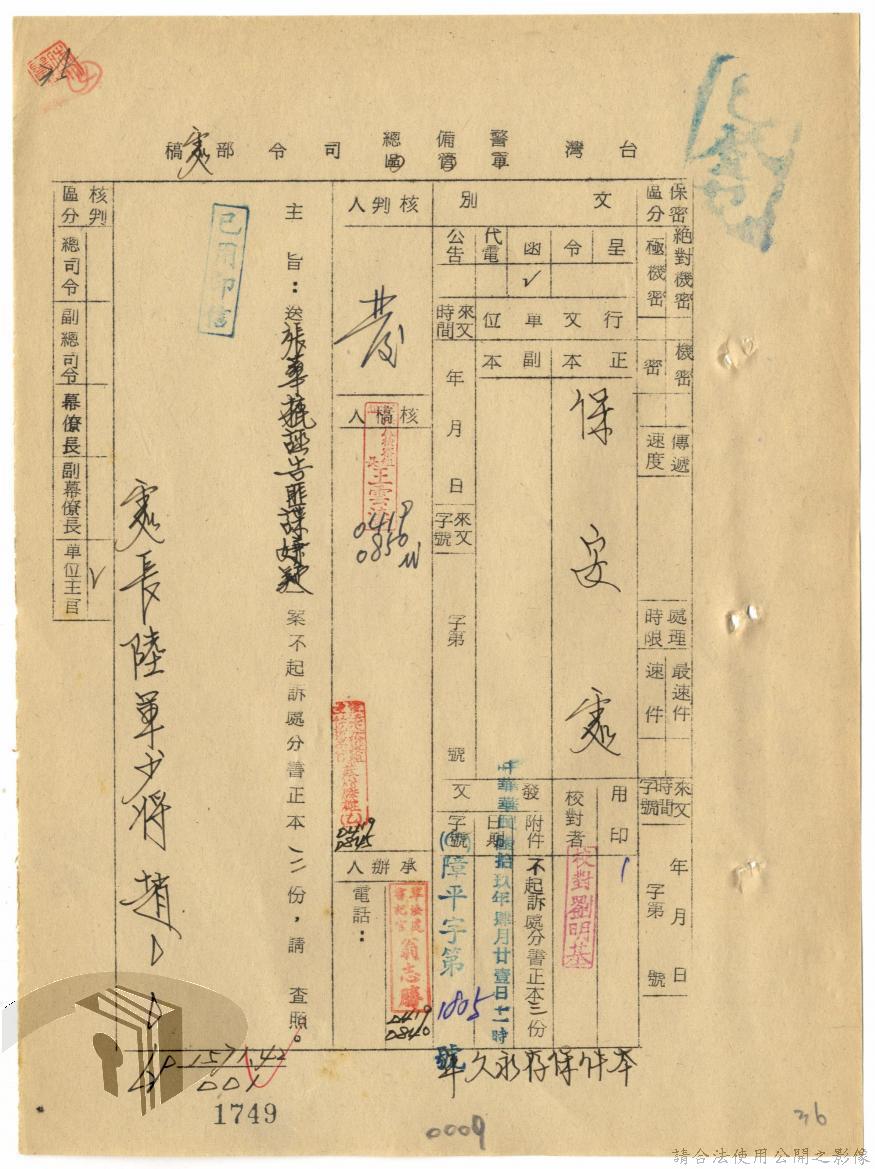 台灣警備總司令部處稿
軍管區
保密區分
絕對機密
極機密
機密
密
傳遞速度
最速件
速件
處理時限
來文時間字號
年月日
字第號
文別
呈
令
函
代電
公告
✓
行文單位
正本
副本
保安處
來文時間
年月日
來文字號
字第號
用印
1
校對者
校對劉明基
發文
附件
不起訴處分書正本三份
日期
中華民國陸拾玖年肆月廿壹日十一時
字號
障平字第
1805
號
核判人
發
核稿人
0419
0850
0419
0845
承辦人
軍法處書記官翁志勝
0419
0840
電話:
主旨:送張華㨗誣告匪諜嫌疑案不起訴處分書正本三份,請查照。
已用印信
處長陸軍少將趙
核判區分
總司令
副總司令
幕僚長
副幕僚長
單位主官
✓
本件保存永久年
1571.42
001
1749
0009
36
請合法使用公開之影像